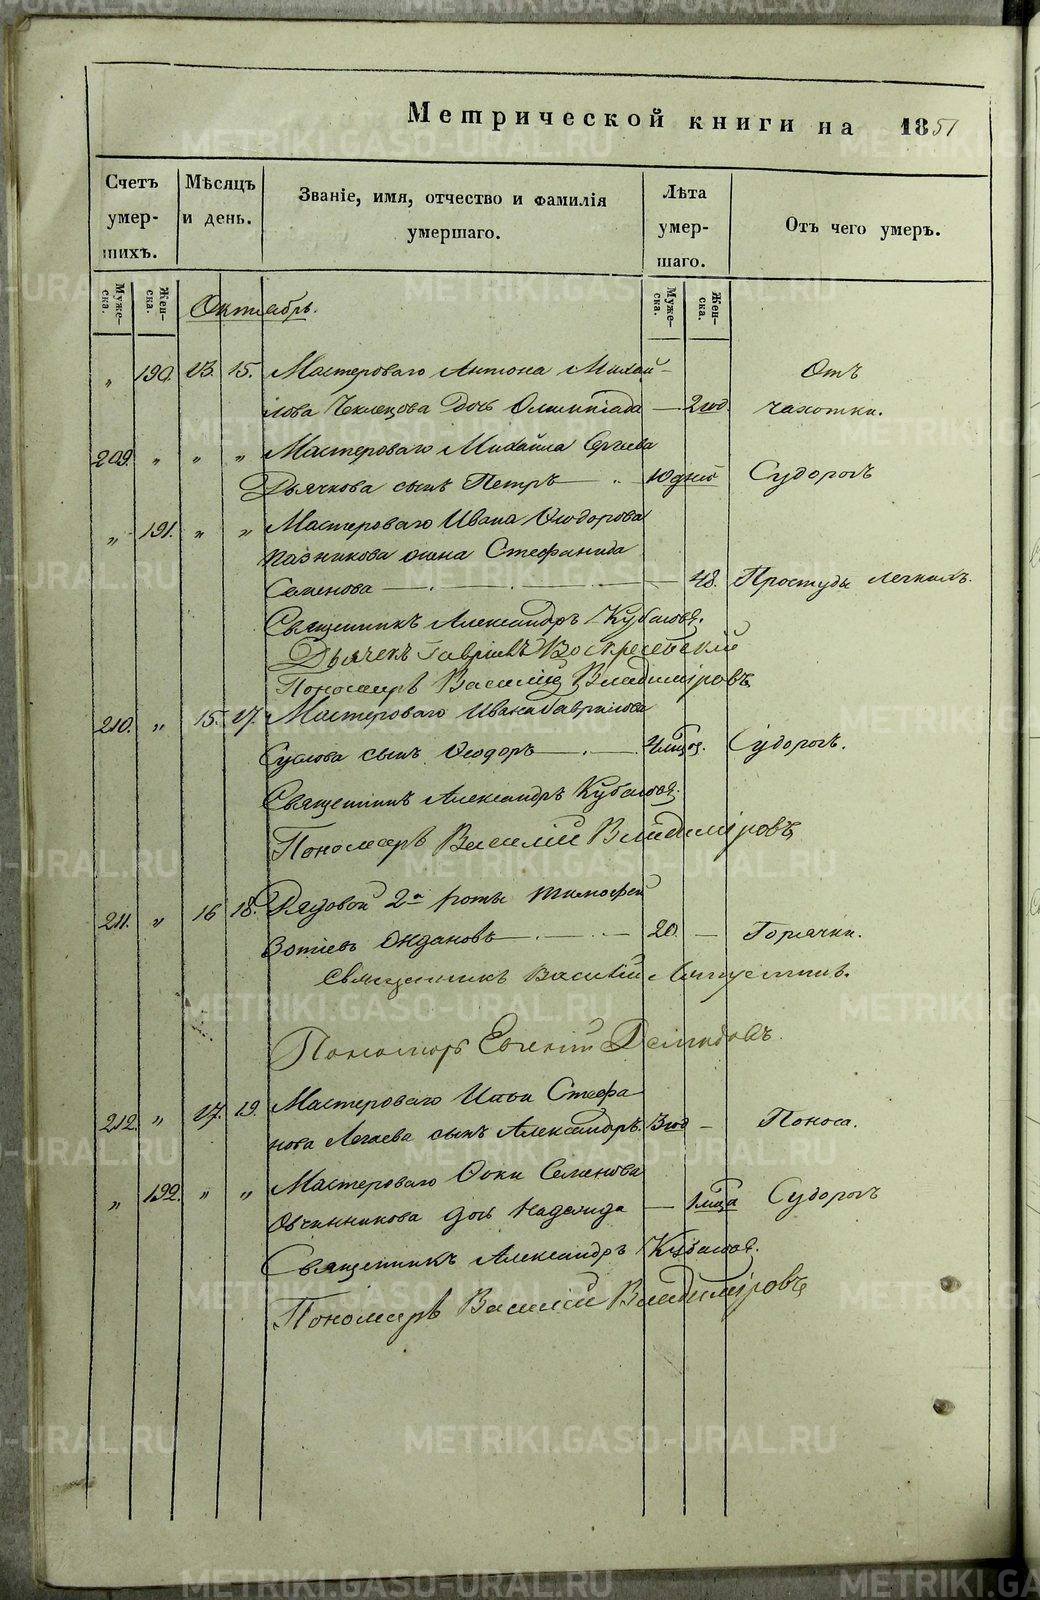 Метрической книги на 1851
Счетъ умершихъ. Мѣсяцъ и день. Званіе, имя, отчество и фамилія умершаго. Лѣта умершаго. Отъ чего умеръ.
Мужеска. Женска. Мужеска. Женска.
Октябрь.
„ 190. 13. 15. Мастероваго Антона Михай- Отъ
лова дочь Олимпіада — 2 год. чахотки.
209. „ „ „ Мастероваго Михайла Сергѣева
Дьячкова сынъ Петръ — 10 дней Судорогъ
„ 191. „ „ Мастероваго Ивана Ѳеодорова
жена Стефанида
Семенова — 48. Простуды легкихъ.
Священникъ Александръ
Дьячекъ Гавріилъ Воскресенскій
Пономарь Василій Владиміровъ
210. „ 15. 17. Мастероваго Ивана Гаврилова
Суслова сынъ Ѳеодоръ — Судорогъ.
Священникъ Александръ
Пономарь Василій Владиміровъ
211. „ 16 18. Рядовой 2й роты Тимофей
Зотіевъ — 20. — Горячки.
Священникъ Василій
Пономарь Евгеній Демидовъ.
212. „ 17. 19. Мастероваго Стефа-
нова сынъ Александръ. 3 год — Поноса.
„ 192. „ „ Мастероваго Ѳоки Семенова
Овчинникова дочь Надежда — 1 мца Судорогъ
Священникъ Александръ
Пономарь Василій Владиміровъ
METRIKI.GASO-URAL.RU